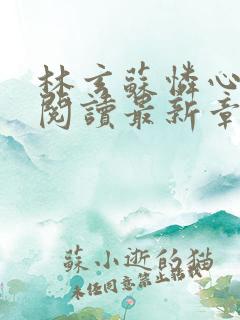 林玄蘇憐心
閱讀最新章
蘇小逝的猫
未经同意禁止转载